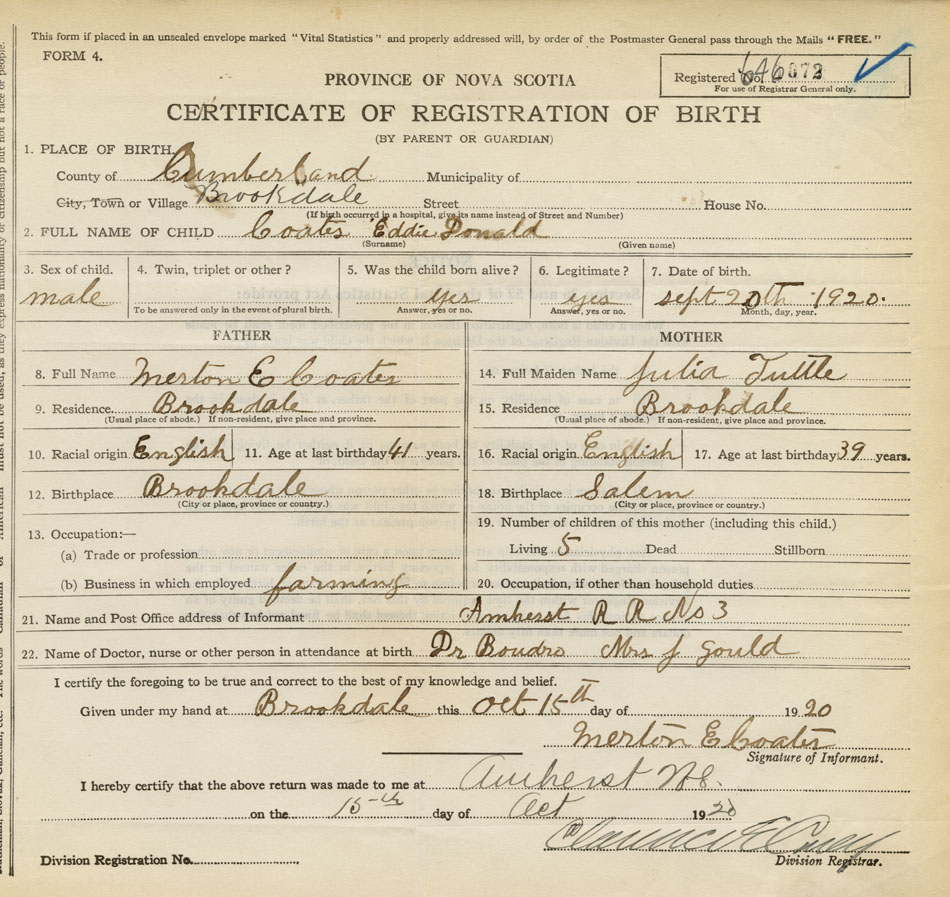 This form if placed in an unsealed envelope marked "Vital Statistics" and properly addressed will, by order of the Postmaster General pass through the Mails "FREE."
FORM 4.
Registered No.
For use of Registrar General only.
PROVINCE OF NOVA SCOTIA
CERTIFICATE OF REGISTRATION OF BIRTH
(BY PARENT OR GUARDIAN)
1. PLACE OF BIRTH.
County of Cumberland Municipality of
City, Town or Village Brookdale Street House No.
(If birth occurred in a hospital, give its name instead of Street and Number)
2. FULL NAME OF CHILD Coates Eddie Donald
(Surname) (Given name)
3. Sex of child. 4. Twin, triplet or other? 5. Was the child born alive? 6. Legitimate? 7. Date of birth.
male yes yes sept 20th 1920.
To be answered only in the event of plural birth. Answer, yes or no. Answer, yes or no. Month, day, year.
FATHER MOTHER
8. Full Name Merton E Coates 14. Full Maiden Name Julia Tuttle
9. Residence Brookdale 15. Residence Brookdale
(Usual place of abode.) If non-resident, give place and province. (Usual place of abode.) If non-resident, give place and province.
10. Racial origin English 11. Age at last birthday 41 years. 16. Racial origin English 17. Age at last birthday 39 years.
12. Birthplace Brookdale 18. Birthplace Salem
(City or place, province or country.) (City or place, province or country.)
13. Occupation:— 19. Number of children of this mother (including this child.)
(a) Trade or profession Living 5 Dead Stillborn
(b) Business in which employed farming 20. Occupation, if other than household duties
21. Name and Post Office address of Informant Amherst R R No 3
22. Name of Doctor, nurse or other person in attendance at birth Dr Boudro Mrs J Gould
I certify the foregoing to be true and correct to the best of my knowledge and belief.
Given under my hand at Brookdale this Oct 15th day of 1920
Merton E Coates
Signature of Informant.
I hereby certify that the above return was made to me at Amherst N.S.
on the 15th day of Oct 1920
Division Registration No.
Division Registrar.